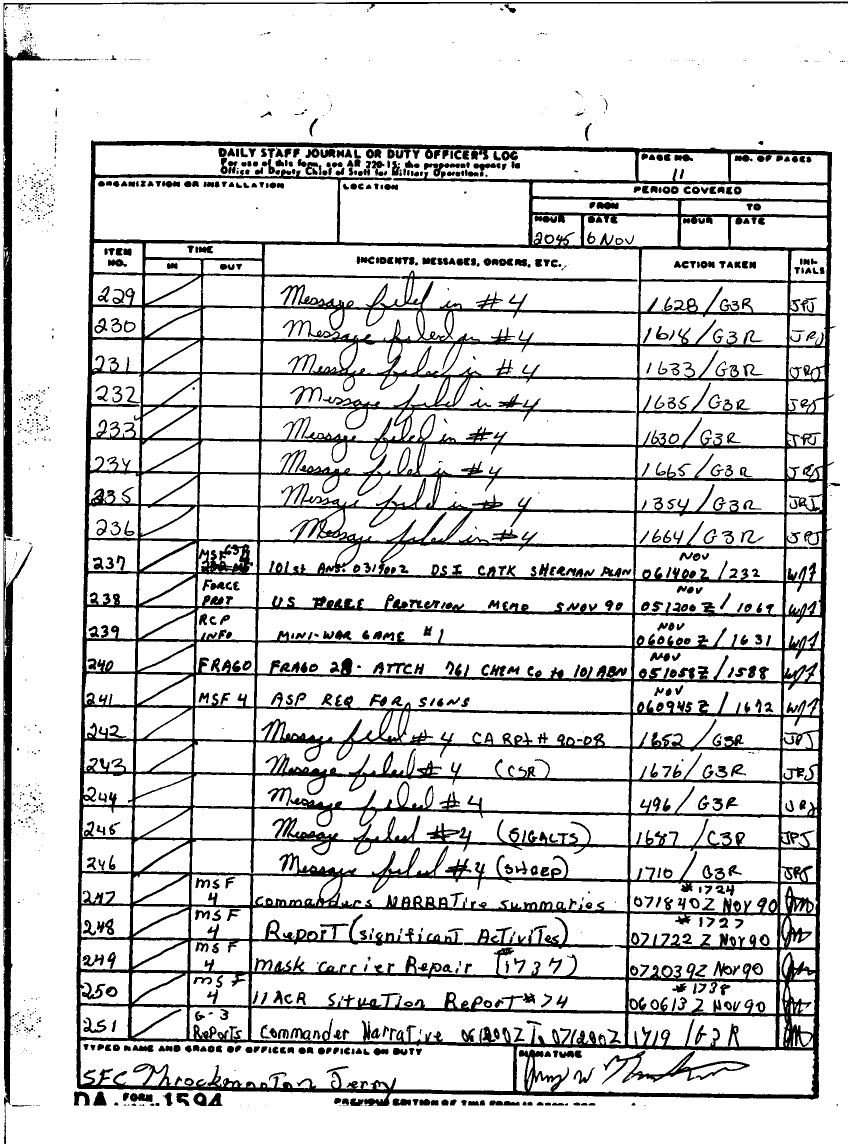 DAILY STAFF JOURNAL OR DUTY OFFICER'S LOG
For use of this form, see AR 220-15; the proponent agency is
Office of Deputy Chief of Staff for Military Operations.
PAGE NO.
11
NO. OF PAGES
ORGANIZATION OR INSTALLATION
LOCATION
PERIOD COVERED
FROM
TO
HOUR
DATE
HOUR
DATE
2045 6 Nov
ITEM NO.
TIME
IN
OUT
INCIDENTS, MESSAGES, ORDERS, ETC.
ACTION TAKEN
INI-TIALS
229 Message filed in #4 1628/G3R JPJ
230 Message filed in #4 1618/G3R JPJ
231 Message filed in #4 1633/G3R JPJ
232 Message filed in #4 1635/G3R JPJ
233 Message filed in #4 1630/G3R JPJ
234 Message filed in #4 1665/G3R JPJ
235 Message filed in #4 1354/G3R JPJ
236 Message filed in #4 1664/G3R JPJ
237 MSF 101st ANS: 031900Z DSI CATK SHERMAN PLAN 061400Z NOV/232
238 FORCE PROT US FORCE PROTECTION MEMO 5 NOV 90 051200Z NOV/1069
239 RCP INFO MINI-WAR GAME #1 060600Z NOV/1631
240 FRAGO FRAGO 28 - ATTCH 761 CHEM Co to 101 ABN 051058Z NOV/1588
241 MSF 4 ASP REQ FOR SIGNS 060945Z NOV/1672
242 Message filed #4 CA RPT # 90-08 1652/G3R JPJ
243 Message filed #4 (CSR) 1676/G3R JPJ
244 Message filed #4 496/G3R JPJ
245 Message filed #4 (SIGACTS) 1687/G3R JPJ
246 Message filed #4 1710/G3R JPJ
247 MSF 4 commanders NARRATive summaries #1724 071840Z NOV 90
248 MSF 4 Report (significant Activites) #1727 071722Z NOV 90
249 MSF 4 mask carrier Repair (#1737) 072039Z NOV 90
250 MSF 4 11ACR Situation Report #74 #1738 060613Z NOV 90
251 G-3 Reports Commander Narrative 061200Z To 071200Z 1719/G3R
TYPED NAME AND GRADE OF OFFICER OR OFFICIAL ON DUTY
SFC Throckmorton Jerry
SIGNATURE
DA FORM 1594
PREVIOUS EDITION OF THIS FORM IS OBSOLETE